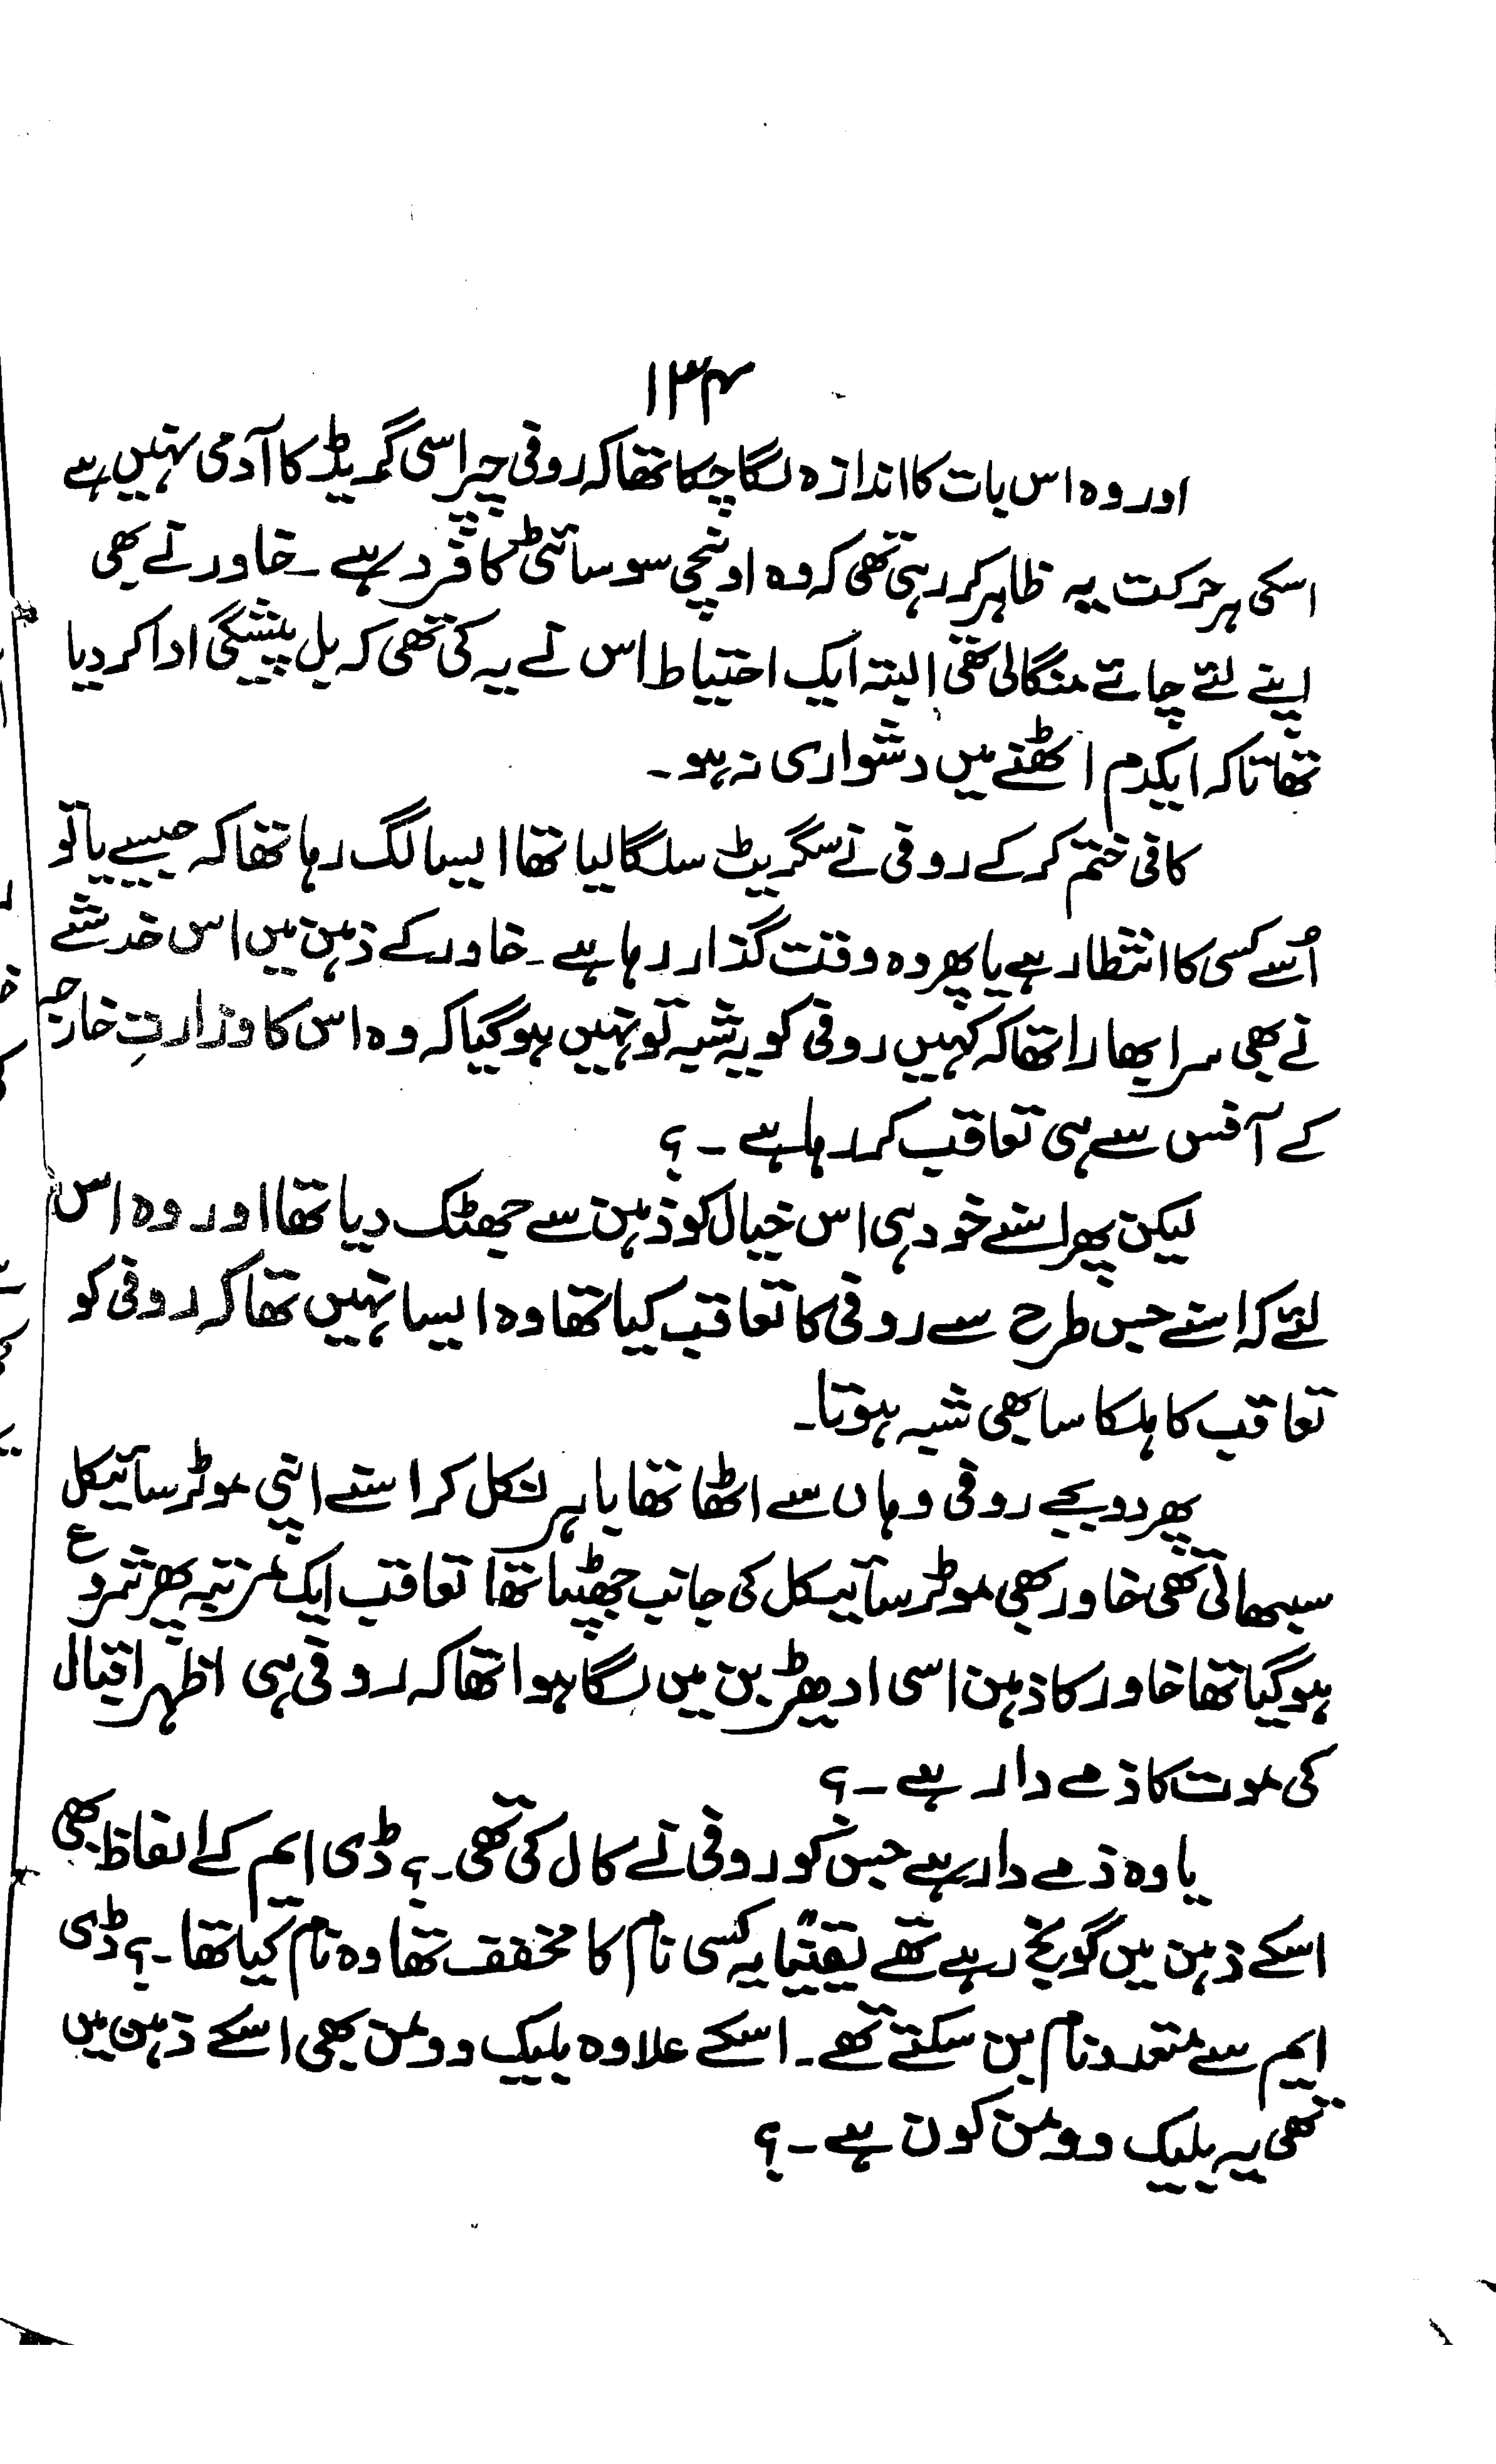 ۱۳۴
اور وہ اس بات کا اندازہ لگا چکا تھا کہ روفی چپراسی گریڈ کا آدمی نہیں ہے
اسکی ہر حرکت یہ ظاہر کر رہی تھی کہ وہ اونچی سوسائٹی کا فرد ہے ۔ خاور نے بھی
اپنے لئے چائے منگالی تھی البتہ ایک احتیاط اس نے یہ کی تھی کہ بل پیشگی ادا کر دیا
تھا تاکہ ایکدم اٹھنے میں دشواری نہ ہو ۔
کافی ختم کر کے روفی نے سگریٹ سلگا لیا تھا ایسا لگ رہا تھا کہ جیسے یا تو
اُسے کسی کا انتظار ہے یا پھر وہ وقت گذار رہا ہے ۔ خاور کے ذہن میں اس خدشے
نے بھی سر ابھارا تھا کہ کہیں روفی کو یہ شبہ تو نہیں ہو گیا کہ وہ اس کا وزارتِ خارجہ
کے آفس سے ہی تعاقب کر رہا ہے ۔ ؟
لیکن پھر اسنے خود ہی اس خیال کو ذہن سے جھٹک دیا تھا اور وہ اس
لئے کہ اسنے جس طرح سے روفی کا تعاقب کیا تھا وہ ایسا نہیں تھا کہ روفی کو
تعاقب کا ہلکا سا بھی شبہ ہوتا ۔
پھر دو بجے روفی وہاں سے اٹھا تھا باہر نکل کر اسنے اپنی موٹر سائیکل
سبھالی تھی خاور بھی موٹر سائیکل کی جانب جھپٹا تھا تعاقب ایک مرتبہ پھر شروع
ہو گیا تھا خاور کا ذہن اسی ادھیڑ بن میں لگا ہوا تھا کہ روفی ہی اظہر اقبال
کی موت کا ذمے دار ہے ۔ ؟
یا وہ ذمے دار ہے جس کو روفی نے کال کی تھی ۔ ؟ ڈی ایم کے الفاظ بھی
اسکے ذہن میں گونج رہے تھے یقیناً یہ کسی نام کا مخفف تھا وہ نام کیا تھا ۔ ؟ ڈی
ایم سے متعدد نام بن سکتے تھے ۔ اسکے علاوہ بلیک وومن بھی اسکے ذہن میں
تھی یہ بلیک وومن کون ہے ۔ ؟